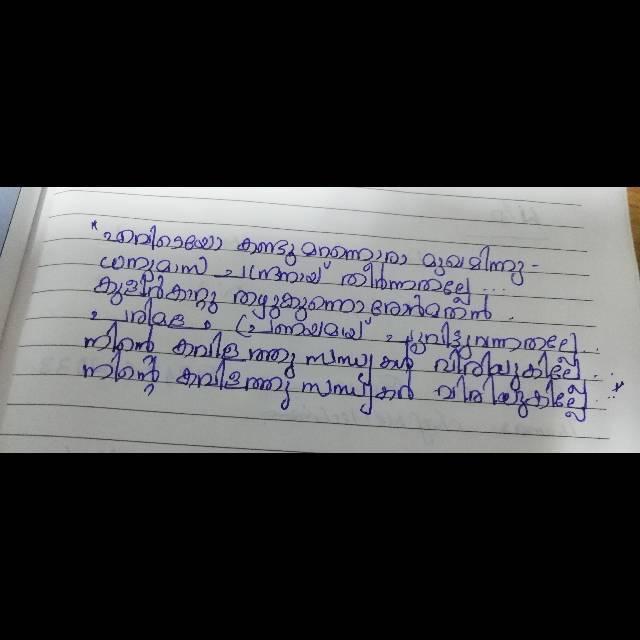 "എവിടെയോ കണ്ടു മറന്നൊരാ മുഖമിന്നു -
ധനുമാസ ചന്ദ്രനായ് തീർന്നതല്ലേ ...
കുളിർകാറ്റു തഴുകുന്നൊരോർമതൻ .
പരിമളം പ്രണയമായ് പൂവിട്ടുവന്നതല്ലേ ..
നിന്റെ കവിളത്തു സന്ധ്യകൾ വിരിയുകില്ലേ ...
നിന്റെ കവിളത്തു സന്ധ്യകൾ വിരിയുകില്ലേ ..."